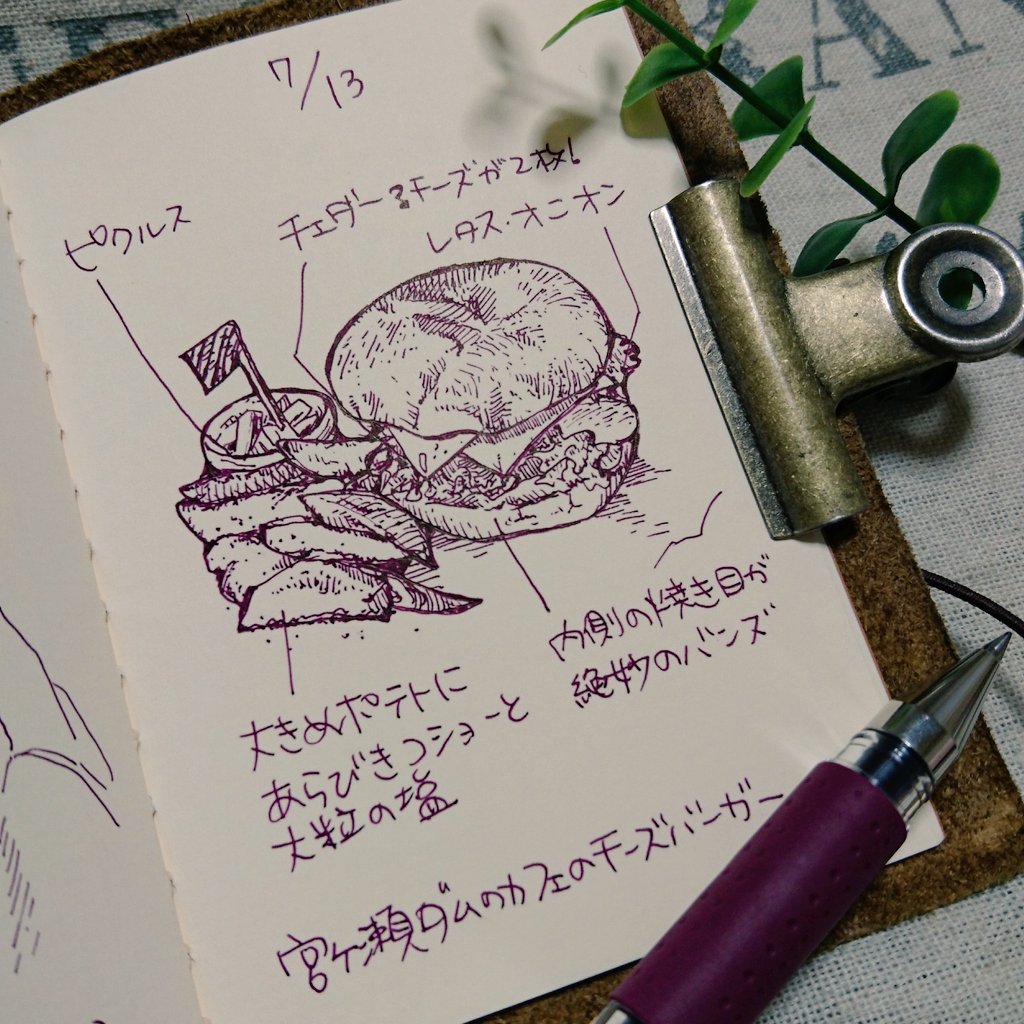 7/13
チェダーチーズが2枚!
ピクルス
レタス・オニオン
内側の焼き目が
絶妙のバンズ
大きめポテトに
あらびきコショーと
大粒の塩
宮ヶ瀬ダムのカフェのチーズバーガー